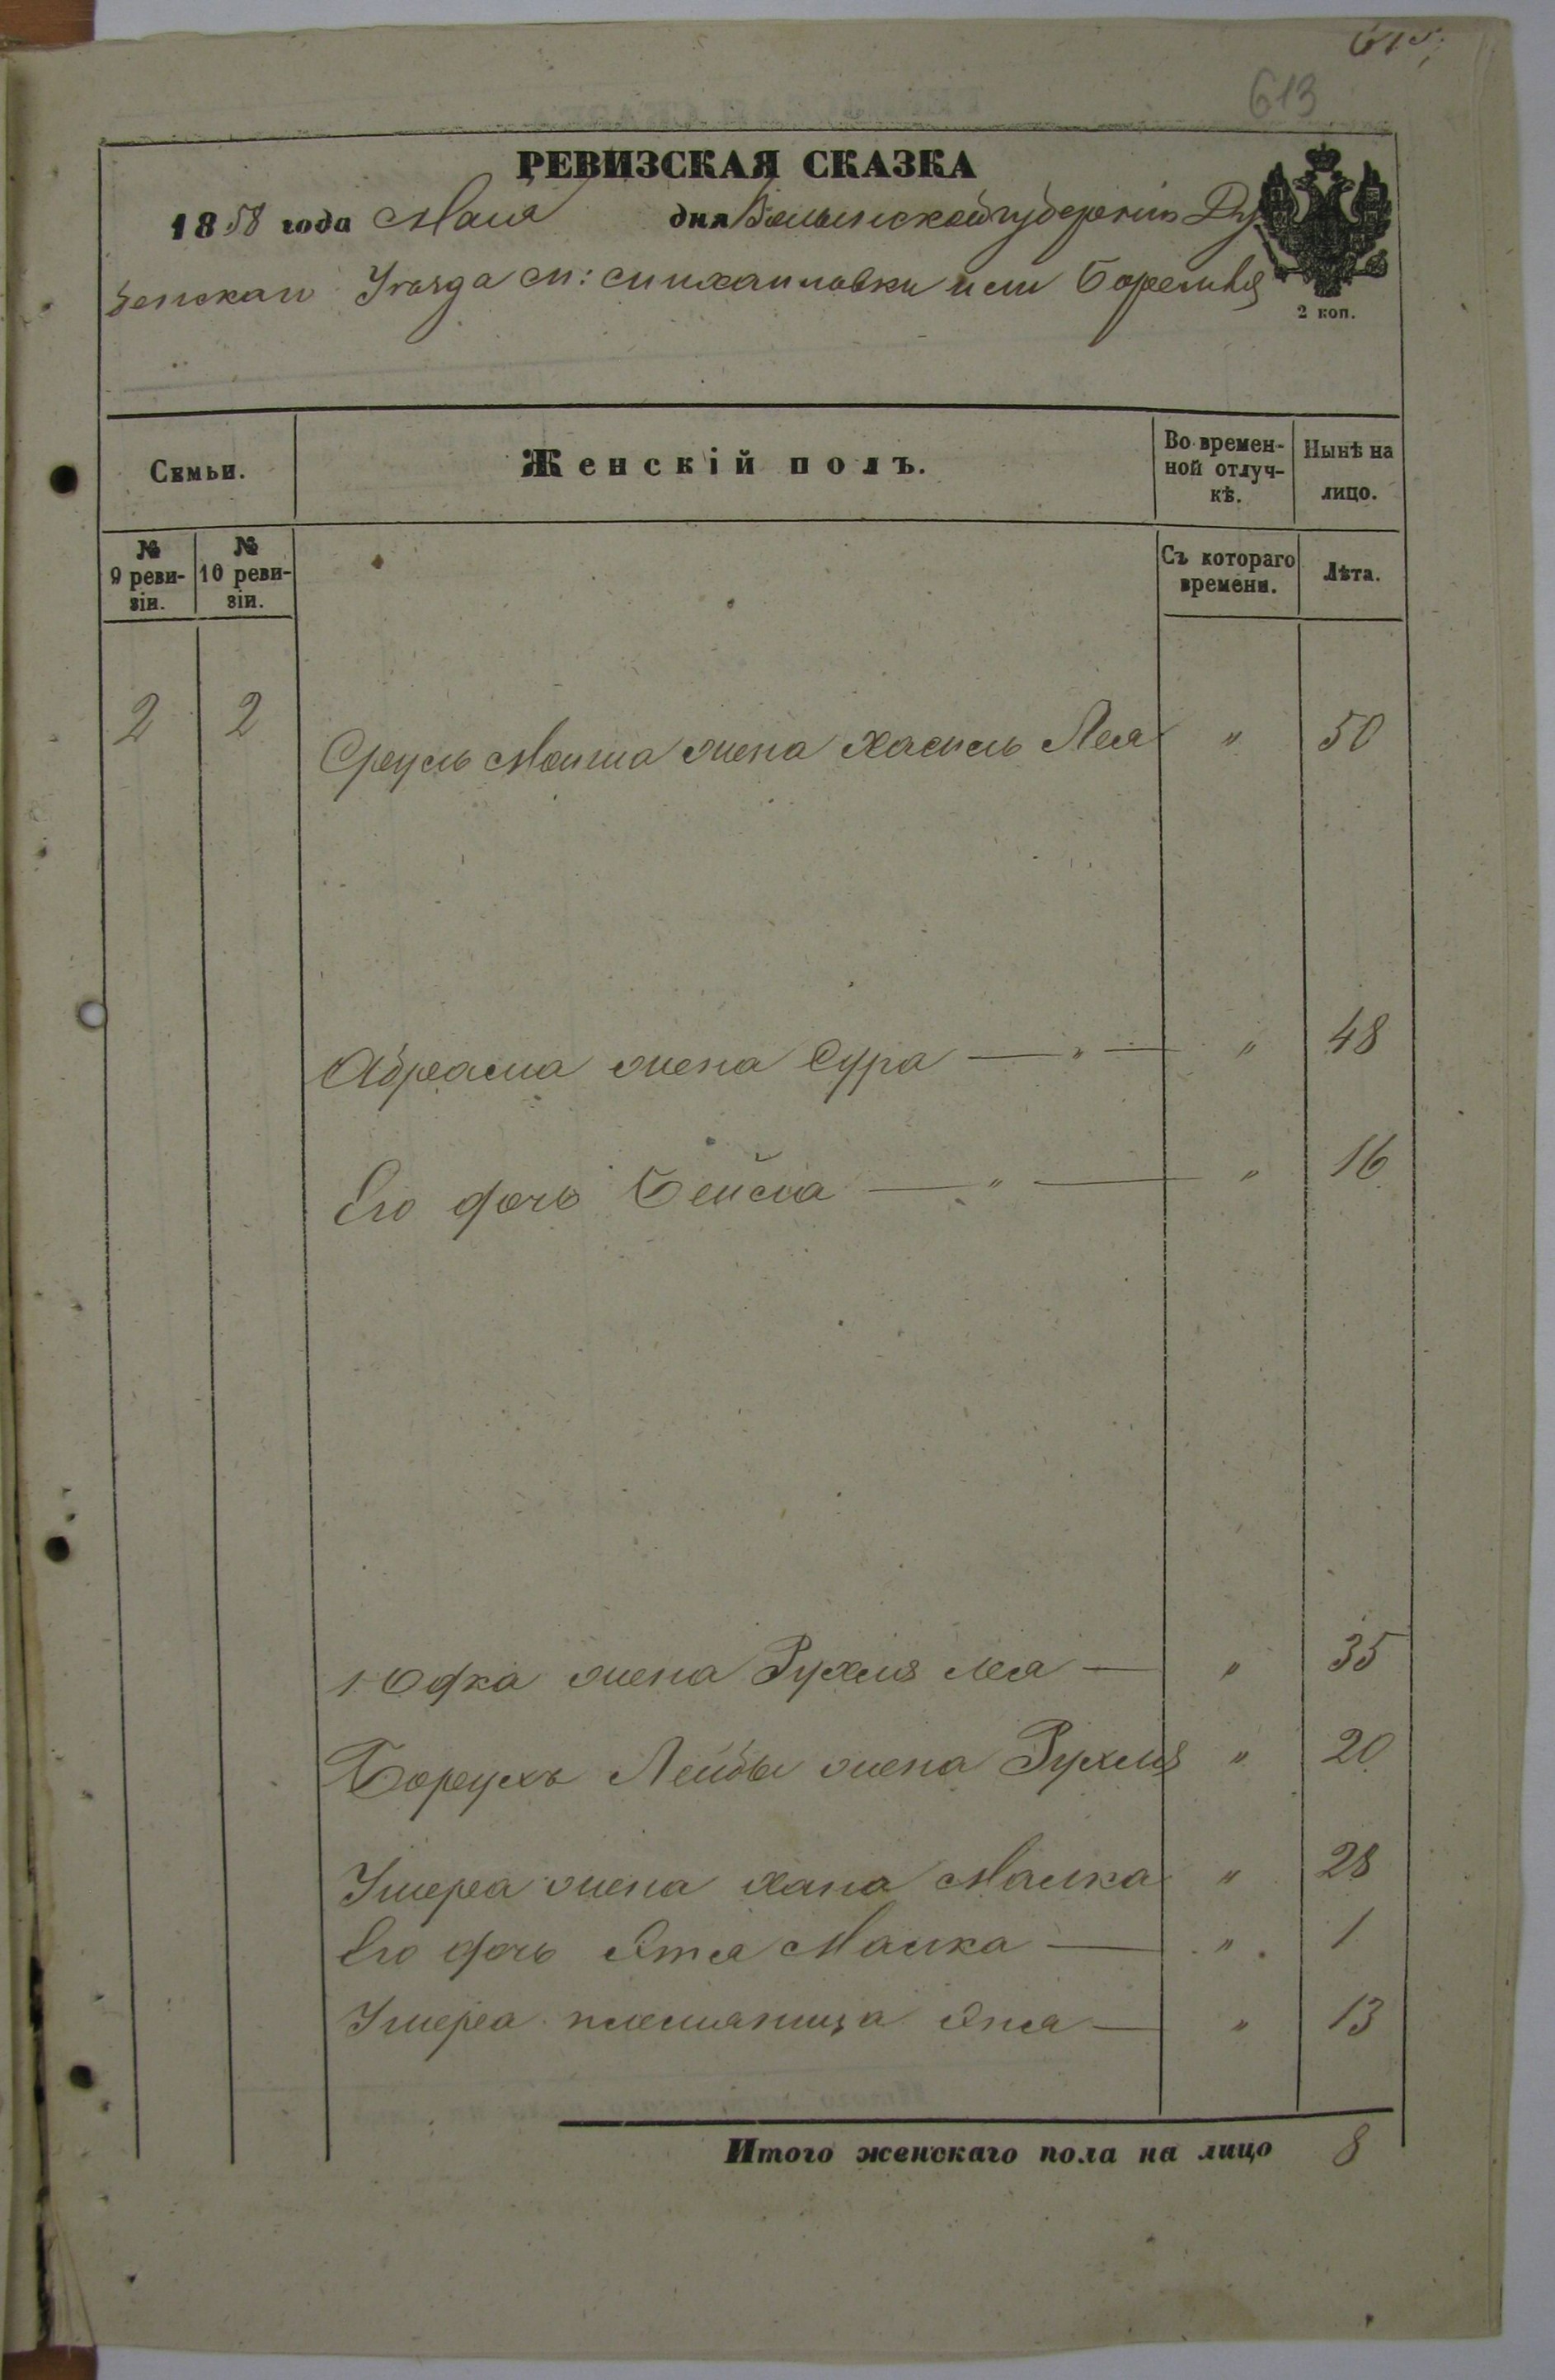 613
РЕВИЗСКАЯ СКАЗКА
1858 года Мая дня Волынской губерніи Ду
бенскаи Уезда м: михаиловки или Боремля
2 коп.
Семьи.
Женскій полъ.
Во времен-
ной отлуч-
кѣ.
Нынѣ на
лицо.
№
9 реви-
зіи.
№
10 реви-
зіи.
Съ котораго
времени.
Лѣта.
2 2 Сруль Мошка жена Хаскель Лея " 50
Абрама жена Сура — " — " 48
Его дочь Бейла — " — " 16
Юдка жена Рухля Лея — " 35
Борухъ Лейбы жена Рухля " 20
Ушера жена хана Малка " 28
Его дочь Этя Малка — " 1
Ушера племяницаЭтя — " 13
Итого женскаго пола на лицо 8